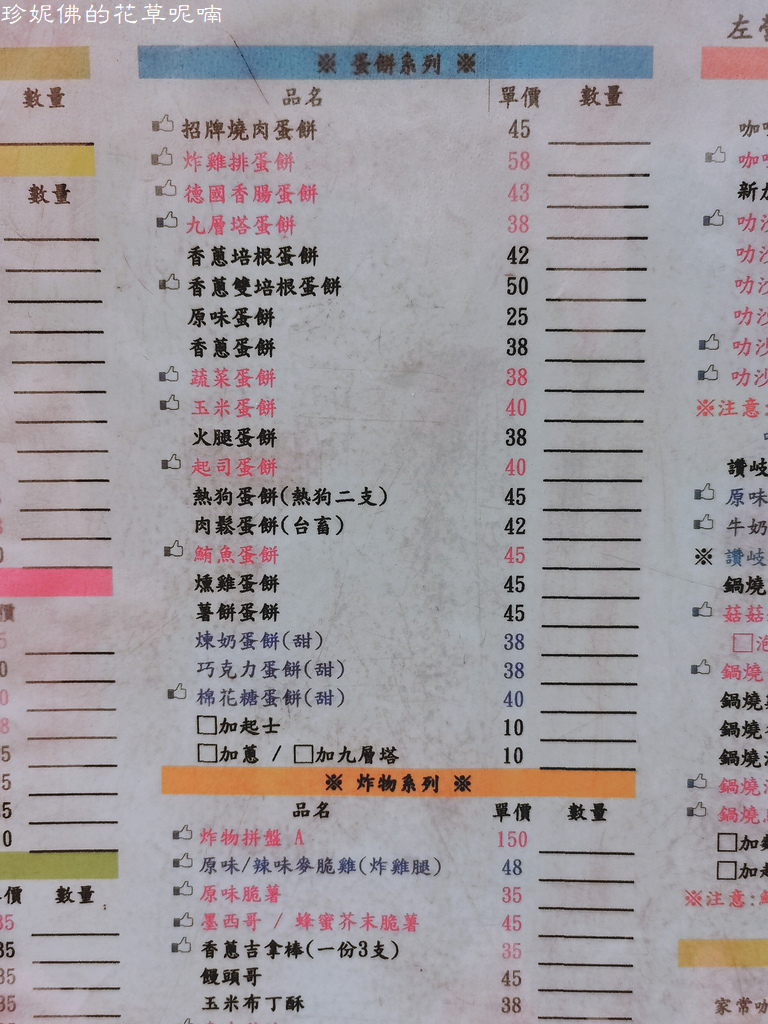 珍妮佛的花草呢喃
※ 蛋餅系列 ※
品名 單價 數量
招牌燒肉蛋餅 45
炸雞排蛋餅 58
德國香腸蛋餅 43
九層塔蛋餅 38
香蔥培根蛋餅 42
香蔥雙培根蛋餅 50
原味蛋餅 25
香蔥蛋餅 38
蔬菜蛋餅 38
玉米蛋餅 40
火腿蛋餅 38
起司蛋餅 40
熱狗蛋餅(熱狗二支) 45
肉鬆蛋餅(台畜) 42
鮪魚蛋餅 45
燻雞蛋餅 45
薯餅蛋餅 45
煉奶蛋餅(甜) 38
巧克力蛋餅(甜) 38
棉花糖蛋餅(甜) 40
□加起士 10
□加蔥 / □加九層塔 10
※ 炸物系列 ※
品名 單價 數量
炸物拼盤 A 150
原味/辣味麥脆雞(炸雞腿) 48
原味脆薯 35
墨西哥 / 蜂蜜芥末脆薯 45
香蔥吉拿棒(一份3支) 35
饅頭哥 45
玉米布丁酥 38
數量
數量
數量
35
35
35
35
左
咖
咖
新
叻沙
叻沙
叻沙
叻沙
叻沙
叻沙
※注意:
讚岐
原味
牛奶
※ 讚岐
鍋燒
菇菇
鍋燒
鍋燒
鍋燒
鍋燒
鍋燒
鍋燒
□加
□加
※注意:
家常咖